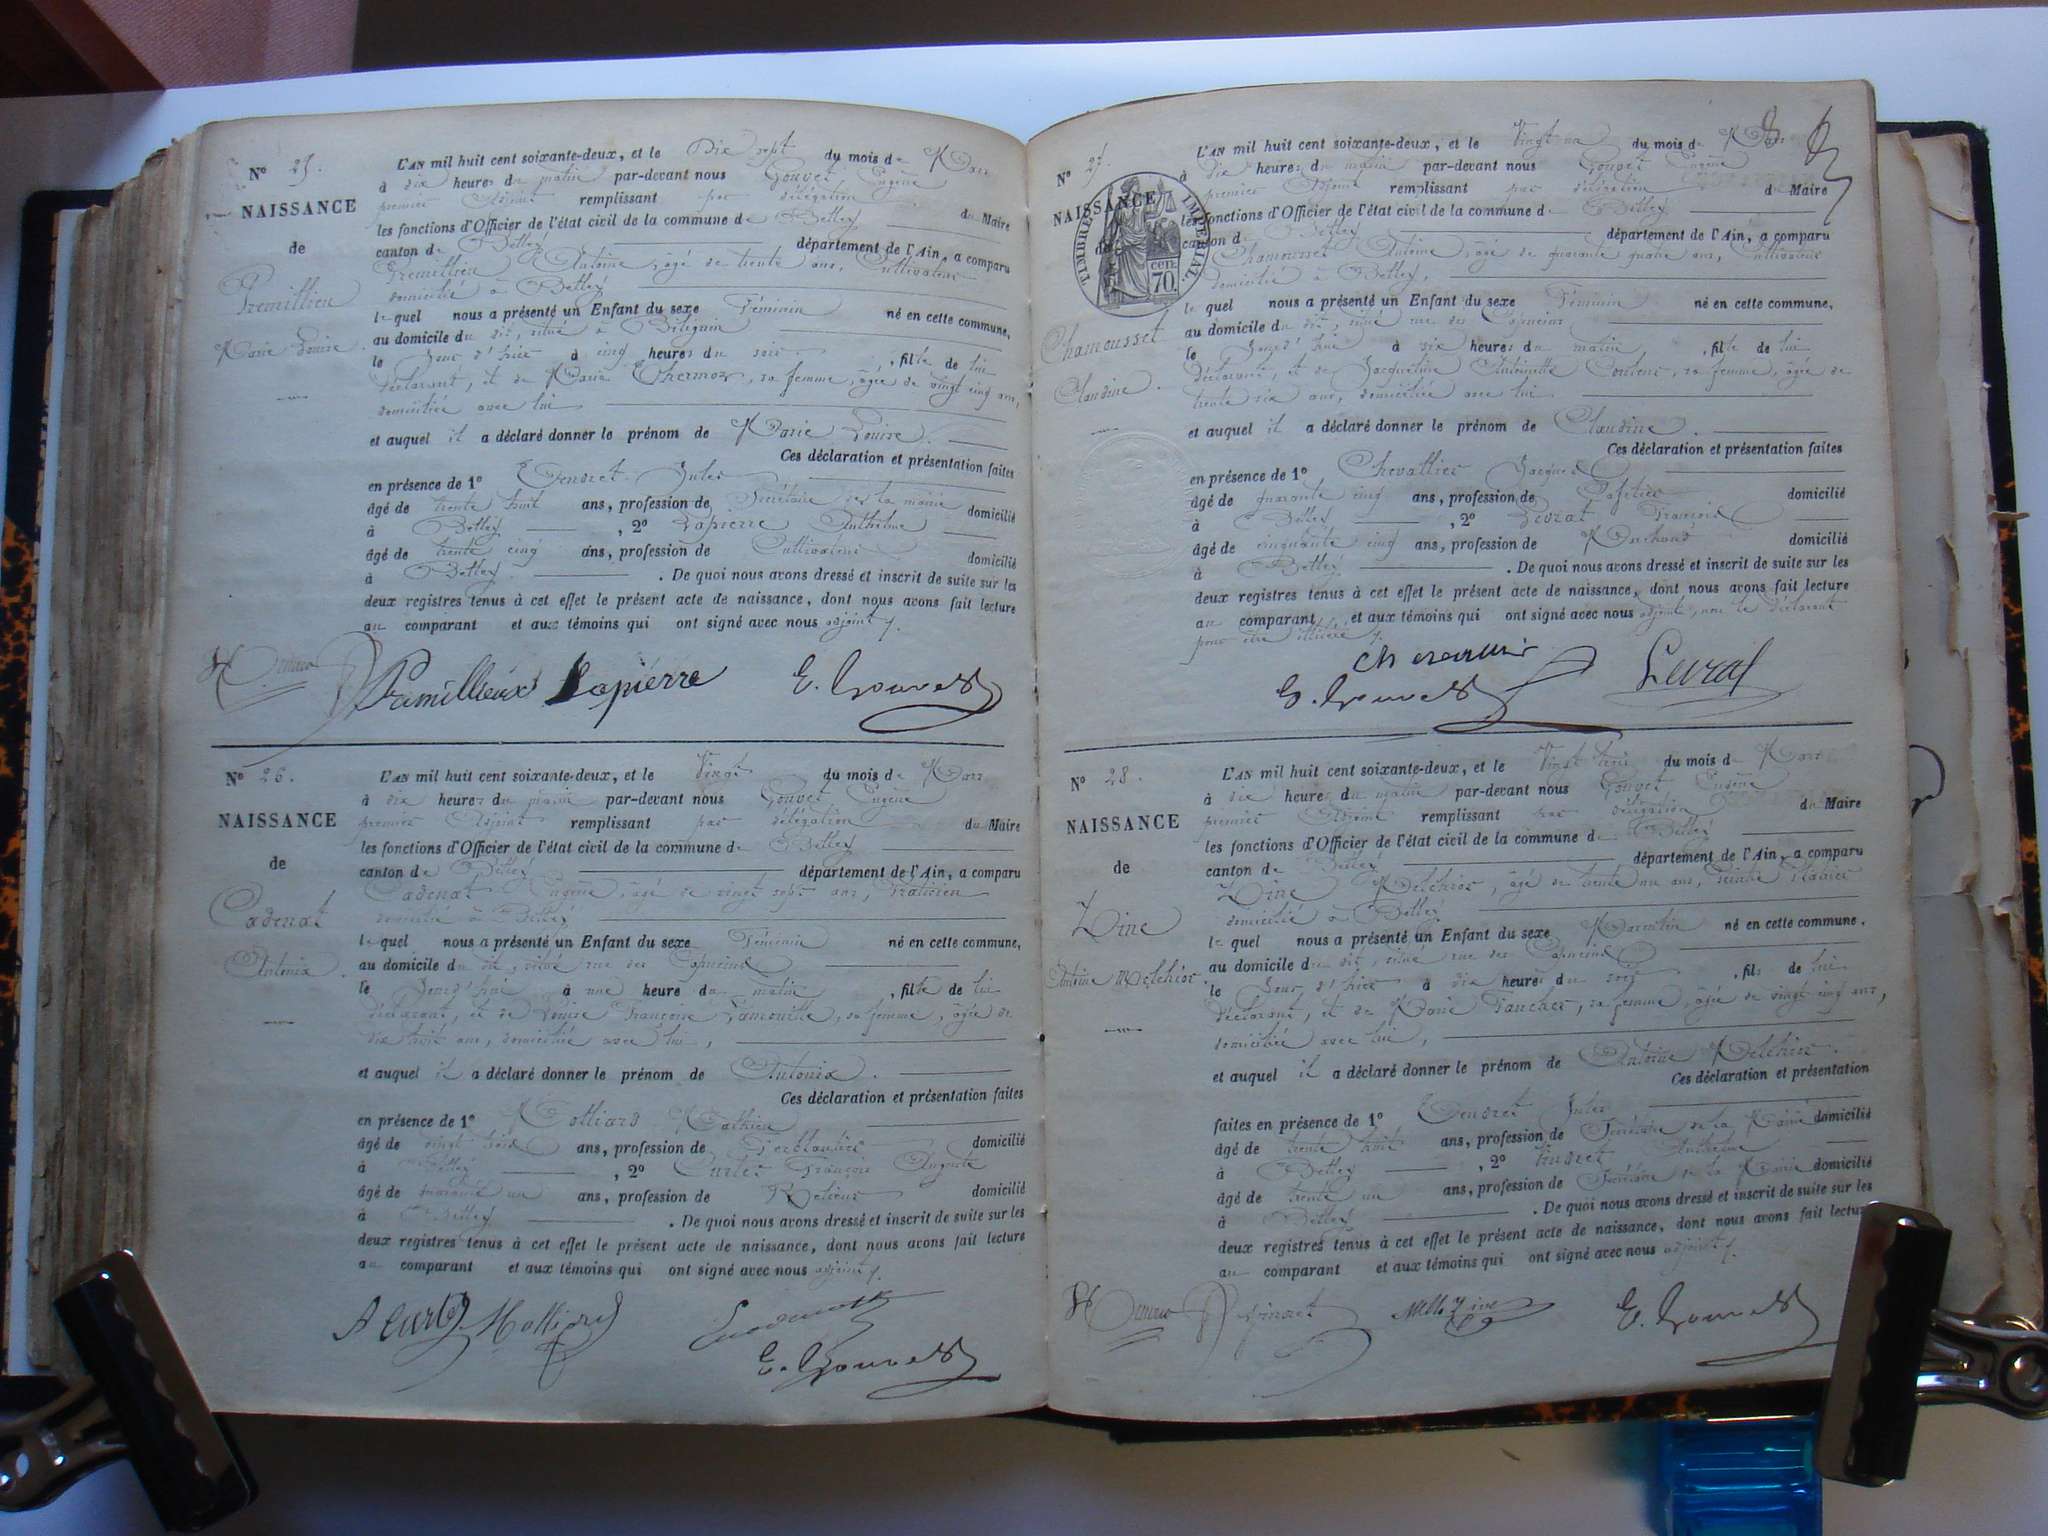 N° 25.
NAISSANCE
de
Premillieu
Marie Louise
L'AN mil huit cent soixante-deux, et le Dix sept du mois de Mars
à dix heures du matin par-devant nous Gouvet Eugène
premier Adjoint remplissant par délégation du Maire
les fonctions d'Officier de l'état civil de la commune de Belley
canton de Belley département de l'Ain, a comparu
Premillieu Antoine, âgé de trente ans, Cultivateur
domicilié à Belley
lequel nous a présenté un Enfant du sexe Féminin né en cette commune,
au domicile du dit, situé à Billignin
le Jour d'hier à cinq heures du soir, fille de lui
déclarant, et de Marie Thermoz, sa femme, âgée de vingt cinq ans,
domiciliée avec lui
et auquel il a déclaré donner le prénom de Marie Louise.
Ces déclaration et présentation faites
en présence de 1° Jules
âgé de trente huit ans, profession de Secrétaire de la mairie domicilié
à Belley, 2° Lapierre Anthelme
âgé de trente cinq ans, profession de Cultivateur domicilié
à Belley. De quoi nous avons dressé et inscrit de suite sur les
deux registres tenus à cet effet le présent acte de naissance, dont nous avons fait lecture
au comparant et aux témoins qui ont signé avec nous adjoint
Pramillieux Lapierre E. Gouvet
N° 26.
NAISSANCE
de
Cadenat
Antonia.
L'AN mil huit cent soixante-deux, et le Vingt du mois de Mars
à dix heures du matin par-devant nous Gouvet Eugène
premier Adjoint remplissant par délégation du Maire
les fonctions d'Officier de l'état civil de la commune de Belley
canton de Belley département de l'Ain, a comparu
Cadenat Eugène, âgé de vingt sept ans, Praticien
domicilié à Belley
lequel nous a présenté un Enfant du sexe Féminin né en cette commune,
au domicile du dit, situé rue des Capucins
le Jour d'hui à une heure du matin, fille de lui
déclarant, et de Louise Françoise Lamouille, sa femme, âgée de
dix huit ans, domiciliée avec lui,
et auquel il a déclaré donner le prénom de Antonia.
Ces déclaration et présentation faites
en présence de 1° Molliard Mathieu
âgé de vingt trois ans, profession de Ferblantier domicilié
à Belley, 2° Curtet François Auguste
âgé de quarante un ans, profession de Relieur domicilié
à Belley. De quoi nous avons dressé et inscrit de suite sur les
deux registres tenus à cet effet le présent acte de naissance, dont nous avons fait lecture
au comparant et aux témoins qui ont signé avec nous adjoint
A Curtet Molliard E. Cadenat
E. Gouvet
N° 27.
NAISSANCE
de
TIMBRE IMPERIAL.
70 CENT.
Chamousset
Claudine.
L'AN mil huit cent soixante-deux, et le Vingt un du mois de Mars
à dix heures du matin par-devant nous Gouvet Eugène
premier Adjoint remplissant par délégation du Maire
les fonctions d'Officier de l'état civil de la commune de Belley
canton de Belley département de l'Ain, a comparu
Chamousset Antoine, âgé de quarante quatre ans, Cultivateur
domicilié à Belley,
lequel nous a présenté un Enfant du sexe Féminin né en cette commune,
au domicile du dit, situé rue des Capucins
le Jour d'hui à six heures du matin, fille de lui
déclarant, et de Jacqueline Antoinette, sa femme, âgée de
trente six ans, domiciliée avec lui
et auquel il a déclaré donner le prénom de Claudine.
Ces déclaration et présentation faites
en présence de 1° Chevallier Jacques
âgé de quarante cinq ans, profession de Cafetier domicilié
à Belley, 2° Levrat François
âgé de cinquante cinq ans, profession de Marchand domicilié
à Belley. De quoi nous avons dressé et inscrit de suite sur les
deux registres tenus à cet effet le présent acte de naissance, dont nous avons fait lecture
au comparant et aux témoins qui ont signé avec nous adjoint, non le déclarant
pour être illitéré
E. Gouvet Levrat
N° 28.
NAISSANCE
de
Zine
Antoine Melchior.
L'AN mil huit cent soixante-deux, et le Vingt trois du mois de Mars
à dix heures du matin par-devant nous Gouvet Eugène
premier Adjoint remplissant par délégation du Maire
les fonctions d'Officier de l'état civil de la commune de Belley
canton de Belley département de l'Ain, a comparu
Zine Melchior, âgé de trente un ans, Peintre Plâtrier
domicilié à Belley
lequel nous a présenté un Enfant du sexe Masculin né en cette commune.
au domicile du dit, situé rue des Capucins
le Jour d'hier à dix heures du soir, fils de lui
déclarant, et de Marie Faucher, sa femme, âgée de vingt cinq ans,
domiciliée avec lui,
et auquel il a déclaré donner le prénom de Antoine Melchior.
Ces déclaration et présentation
faites en présence de 1° Jules
âgé de trente huit ans, profession de Secrétaire de la Mairie domicilié
à Belley, 2° Gindret Anthelme
âgé de trente un ans, profession de Secrétaire de la Mairie domicilié
à Belley. De quoi nous avons dressé et inscrit de suite sur les
deux registres tenus à cet effet le présent acte de naissance, dont nous avons fait lecture
au comparant et aux témoins qui ont signé avec nous adjoint
Gindret Zine E. Gouvet